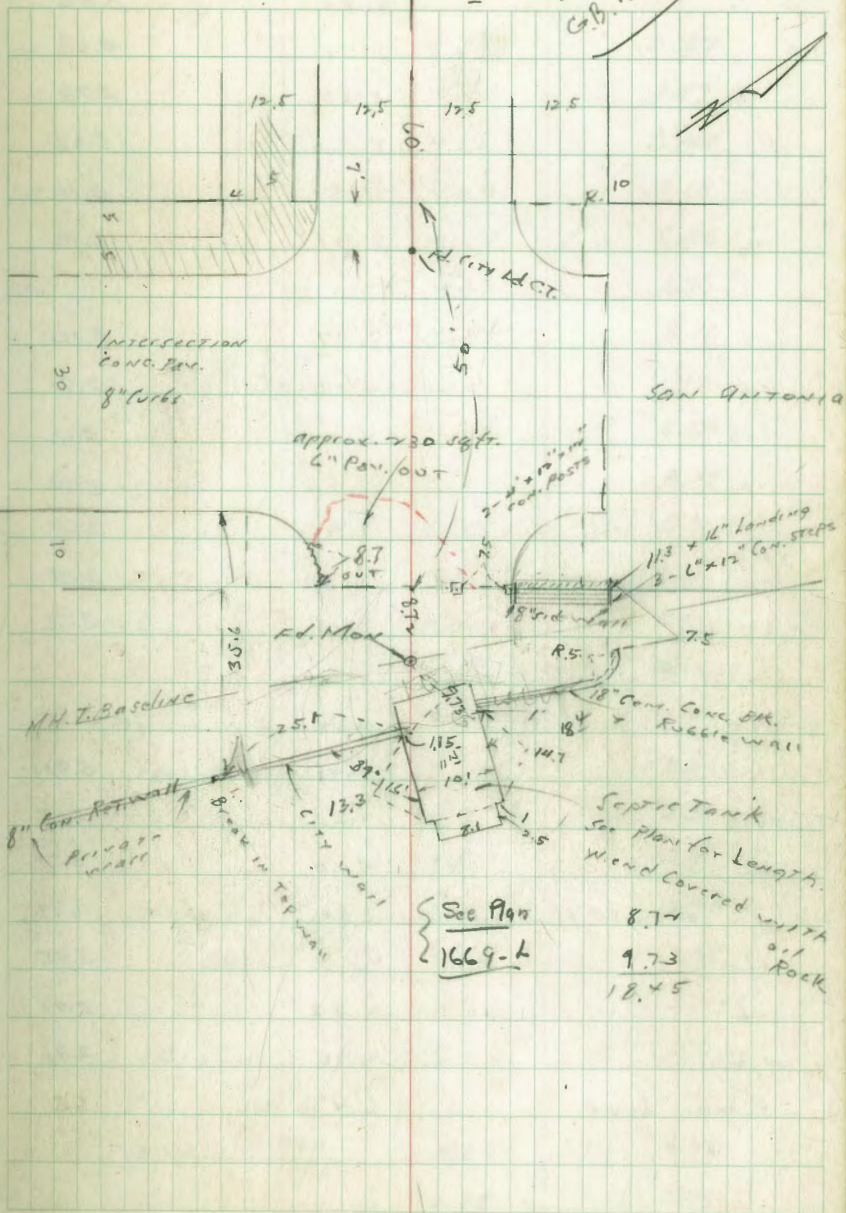 G.B.
12.5
12.5
12.5
12.5
60'
4
5
R.
10
5
5
Fd. City Ld C.T.
50'
Intersection
Conc. Pav.
8" Curbs
30
SAN ANTONIO
approx. 230 sq ft.
6" Pav. OUT
2-4" x 12" x
Con. Posts
7.5
11.3 x 16" Landing
3-6" x 12" Con. Steps
10
8.7
OUT
8.72
18" sid wall
7.5
35.6
Fd. Mon
R.5
M.H.T. Baseline
9.73
18" Com. Conc. Blk.
& Rubble Wall
25.8
1.15
18.4
14.7
89°
1.6'
10'
13.3
8" Con Ret. Wall
Private
Wall
Break in Top Wall
City Wall
8.1
1
2.5
Septic Tank
See Plan for Length.
W. end Covered with
Rock
See Plan
1669-L
8.72
9.73
18.45